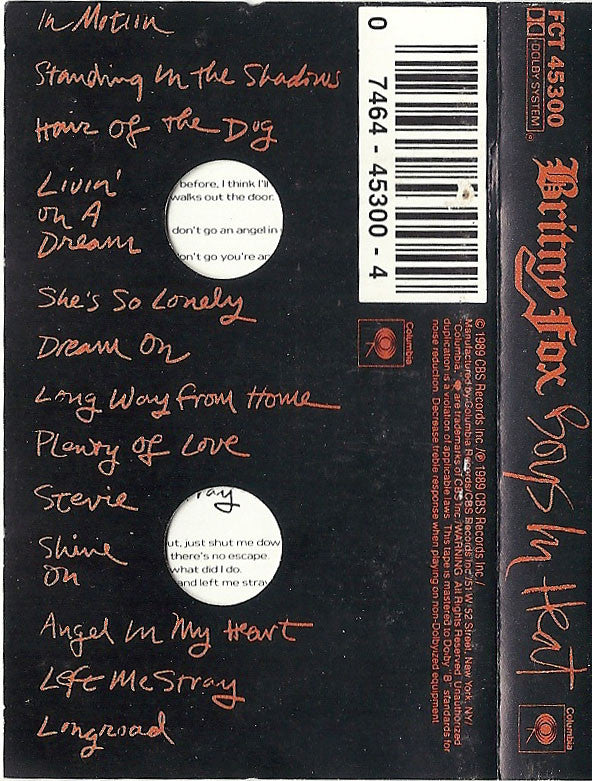 In Motion
Standing In the Shadows
Hair of the Dog
Livin'
on A
Dream
before, I think I'll
walks out the door.
don't go an angel in
on't go you're an
She's So Lonely
Dream On
Long Way From Home
Plenty of Love
Stevie
Shine
On
ray
ut, just shut me dow
there's no escape.
what did I do.
and left me stray
Angel In My Heart
Left Me Stray
Longroad
0 7464-45300-4
Columbia
© 1989 CBS Records Inc./℗ 1989 CBS Records Inc./
Manufactured by Columbia Records/CBS Records Inc./51 W. 52 Street, New York, NY/
"Columbia," are trademarks of CBS Inc./WARNING: All Rights Reserved. Unauthorized
duplication is a violation of applicable laws. This tape is mastered to Dolby "B" standards for
noise reduction. Decrease treble response when playing on non-Dolbyized equipment.
FCT 45300
DOLBY SYSTEM
Britny Fox
Boys In Heat
Columbia